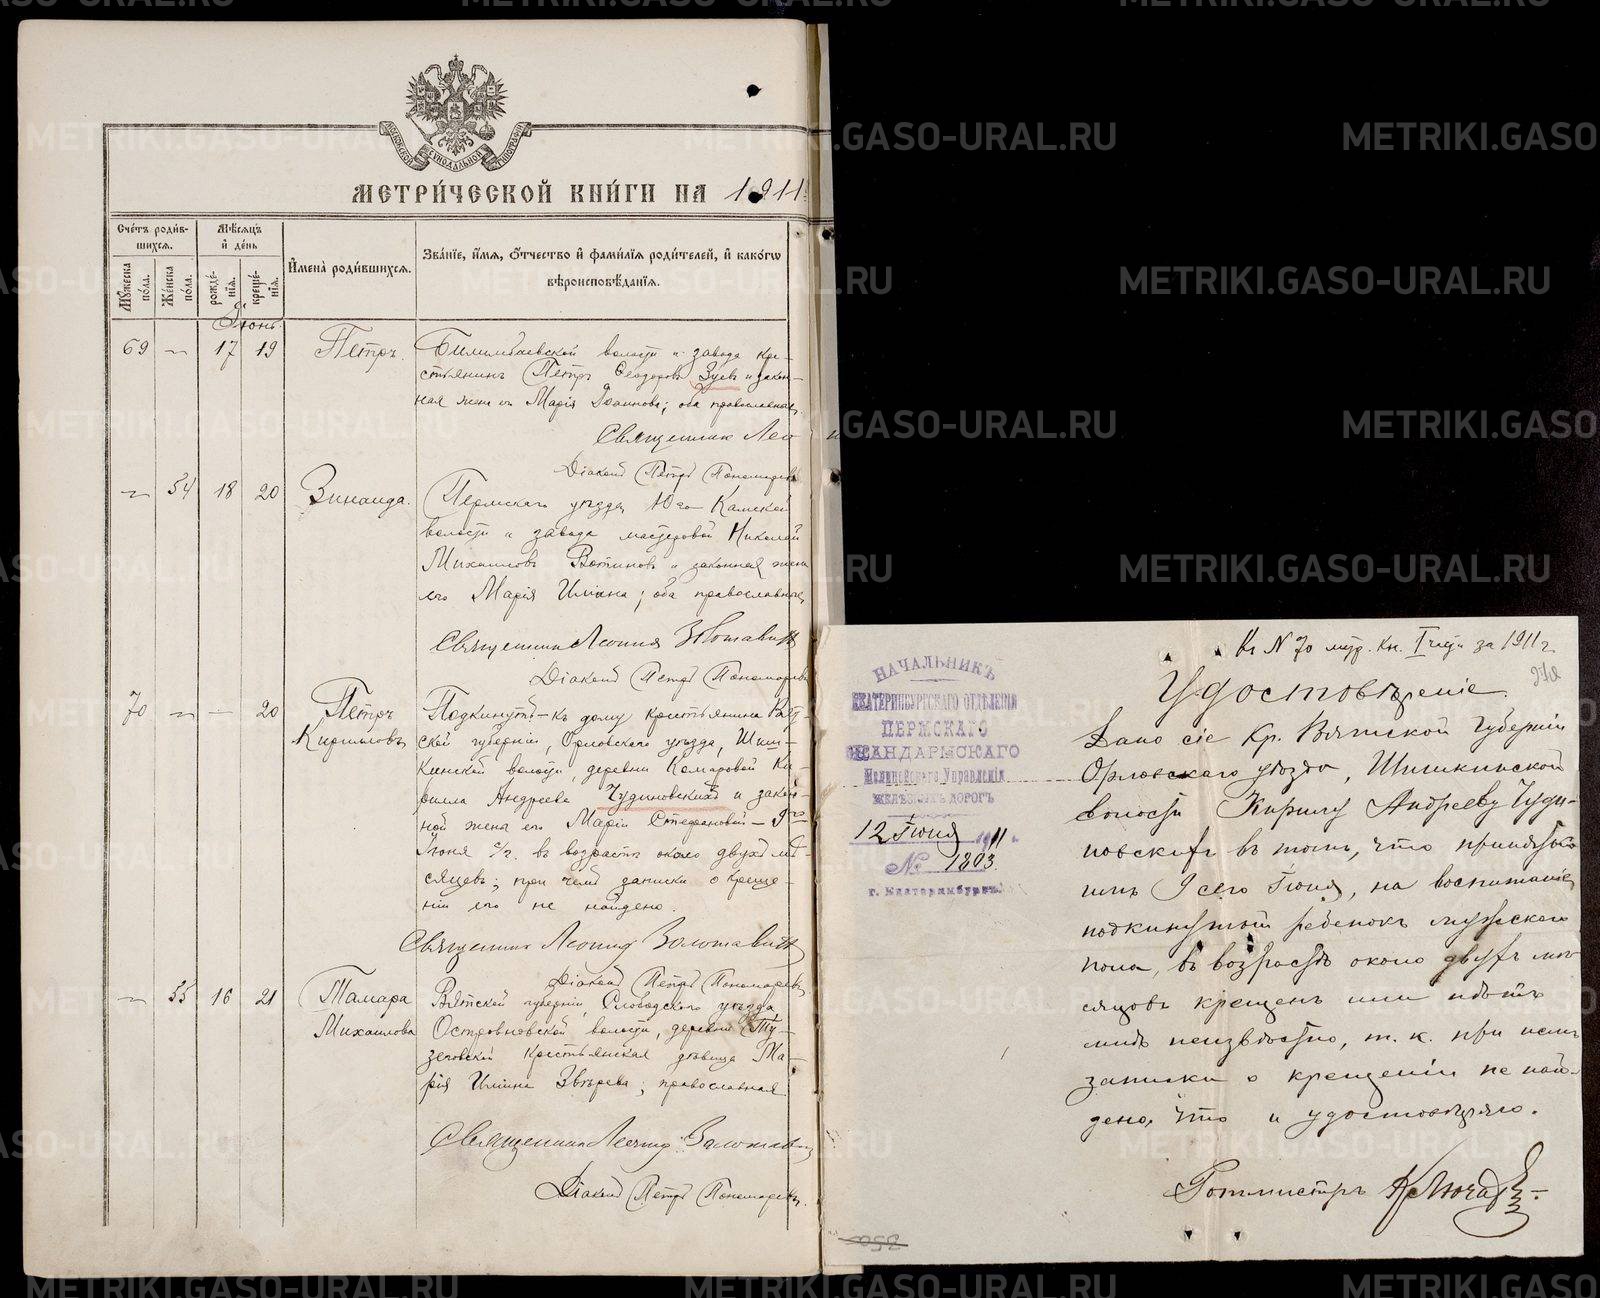 МОСКОВСКОЙ СѴНОДАЛЬНОЙ ТИПОГРАФІИ
МЕТРИ́ЧЕСКОЙ КНИ́ГИ НА 1911
Сче́тъ роди́в-
шихся.
Мѣ́сяцъ
и҆ де́нь
И҆мена̀ роди́вшихся.
Зва́нїе, и҆́мя, ѻ҆́тчество и҆ фами́лїя роди́телей, и҆ како́гѡ
вѣроисповѣ́данїя.
Мꙋ́жеска по́ла.
Же́нска по́ла.
рожде́-нїя.
креще́-нїя.
Іюнь
69 17 19 Петръ. Билимбаевской волости и завода кре-
стьянинъ Петръ Ѳеодоровъ Зуевъ и закон-
ная жена его Марія Іоаннова; оба православные.
Священник Лео
Діаконъ Петръ Пономаревъ
54 18 20 Зинаида. Пермскаго уѣзда, Юго-Камской
волости и завода мастеровой Николай
Михаиловъ Вотиновъ и законная жена
его Марія Иліина; оба православные
Священник Леонид Золотавин
Діаконъ Петръ Пономаревъ
70 — 20 Петръ Подкинутъ къ дому крестьянина Вят-
Кириловъ ской губерніи, Орловскаго уѣзда, Шиш-
кинской волости, деревни Комаровой Ки-
рилла Андреева Чудиновскихъ и закон-
ной жены его Маріи Стефановой — 9го
Іюня с/г. въ возрастѣ около двухъ мѣ-
сяцевъ; при чемъ записки о креще-
ніи его не найдено.
Священник Леонид Золотавин
Діаконъ Петръ Пономаревъ
55 16 21 Тамара Вятской губерніи, Слободскаго уѣзда
Михаилова Островновской волости, деревни Ту-
зеговской крестьянская дѣвица Ма-
рія Иліина Звѣрева; православная
Священник Леонид Золотавин
Діаконъ Петръ Пономаревъ
Къ N 70 мѣр. кн. I части за 1911 г.
НАЧАЛЬНИКЪ
ЕКАТЕРИНБУРГСКАГО ОТДѢЛЕНІЯ
ПЕРМСКАГО
ЖАНДАРМСКАГО
Полицейскаго Управленія
ЖЕЛѢЗНЫХЪ ДОРОГЪ
12 Іюня 1911 г.
№ 1803
г. Екатеринбургъ.
Удостовѣреніе.
Дано сіе кр. Вятской губерніи
Орловскаго уѣзда, Шишкинской
волости Кирилу Андрееву Чуди-
новскихъ въ томъ, что принятый
имъ 9 сего Іюня, на воспитаніе,
подкинутый ребенокъ мужскаго
пола, въ возрастѣ около двухъ мѣ-
сяцовъ крещенъ или нѣтъ
лицъ неизвѣстно, т. к. при немъ
записки о крещеніи не най-
дено, что и удостовѣряю.
Ротмистръ
METRIKI.GASO-URAL.RU